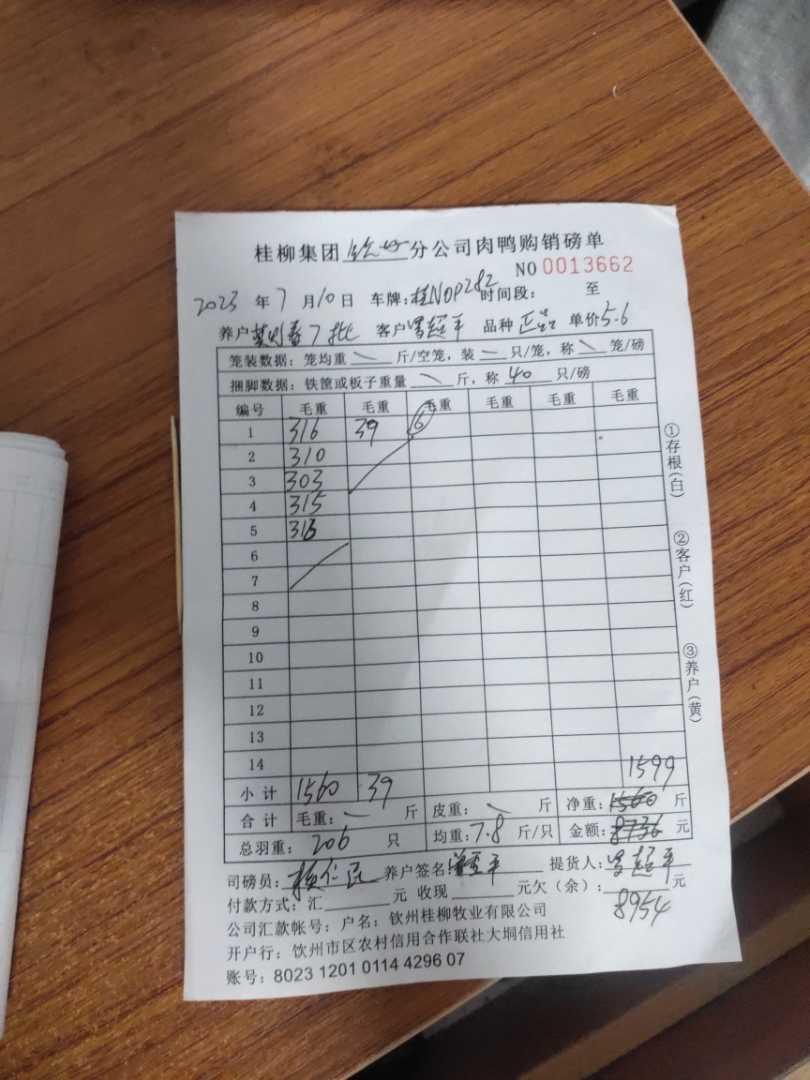 桂柳集团 分公司肉鸭购销磅单
NO 0013662
2023 年 7 月 10 日 车牌:桂N0P282 时间段: 至
养户 7批 客户 曾超平 品种 正品 单价 5.6
笼装数据:笼均重 斤/空笼,装 只/笼,称 笼/磅
捆脚数据:铁筐或板子重量 斤,称 40 只/磅
编号 毛重 毛重 毛重 毛重 毛重 毛重
1 316 39 6
2 310
3 303
4 315
5 316
6
7
8
9
10
11
12
13
14 1599
小计 1560 39
合计 毛重: 斤 皮重: 斤 净重:1560 斤
总羽重: 206 只 均重:7.8 斤/只 金额:8736 元
司磅员: 养户签名 提货人:曾超平
付款方式:汇 元 收现 元欠(余): 元
8954
公司汇款帐号:户名:钦州桂柳牧业有限公司
开户行:钦州市区农村信用合作联社大垌信用社
账号:8023 1201 0114 4296 07
①存根(白)
②客户(红)
③养户(黄)